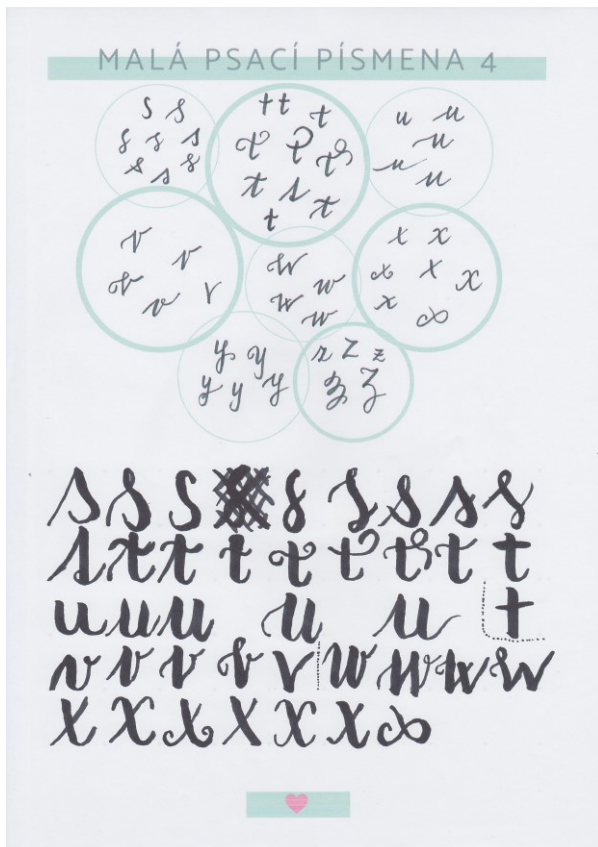 MALÁ PSACÍ PÍSMENA 4
s s
s s s
s s s
t t t
t t t
t t t
t
u u
u
u
u
v v
v v v
w
w w
w
x x
x x x
x
x
y y
y y y
z z z
z z
s s s s s s s s
t t t t t t t t t
u u u u u t
v v v v v w w w w
x x x x x x x